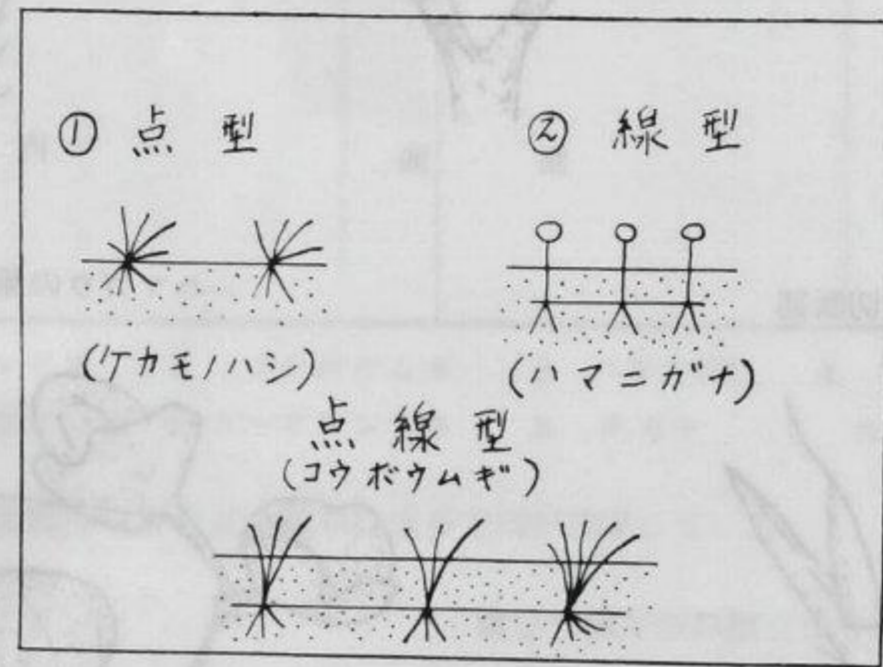 ① 点型
② 線型
(ケカモノハシ)
(ハマニガナ)
点線型
(コウボウムギ)